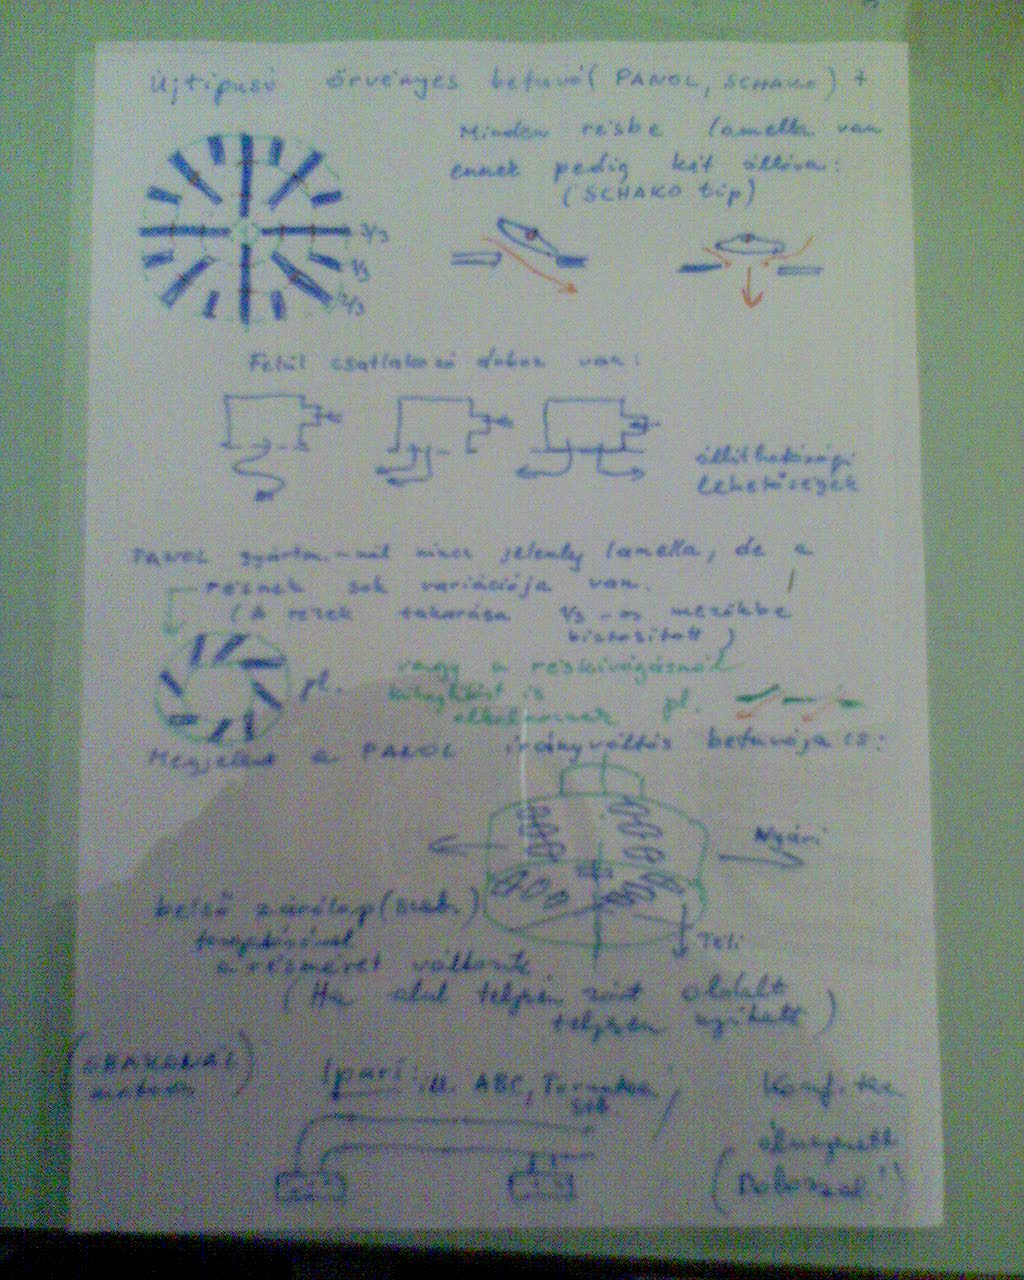 Újtipusú örvényes befuvó (PANOL, SCHAKO) +
Minden résbe lamella van
ennek pedig két állása:
(SCHAKO tip)
3/3
1/3
2/3
Felül csatlakozó doboz van:
állíthatósági
lehetőségek
PANOL gyártm.-nál nincs jelenleg lamella, de a
résnek sok variációja van.
(A rések takarása 1/3-os mezőkbe
biztosított)
pl.
vagy a réskivágásnál
is
alkalmaznak pl.
Megjelent a PANOL irányváltós befuvója is:
Nyári
belső zárólap (szab.)
a résméret változik
Téli
(Ha alul teljesen zárt oldalt
teljesen nyitott)
Ipari: ill. ABC,
stb.
Komf.
(Dobozzal!)